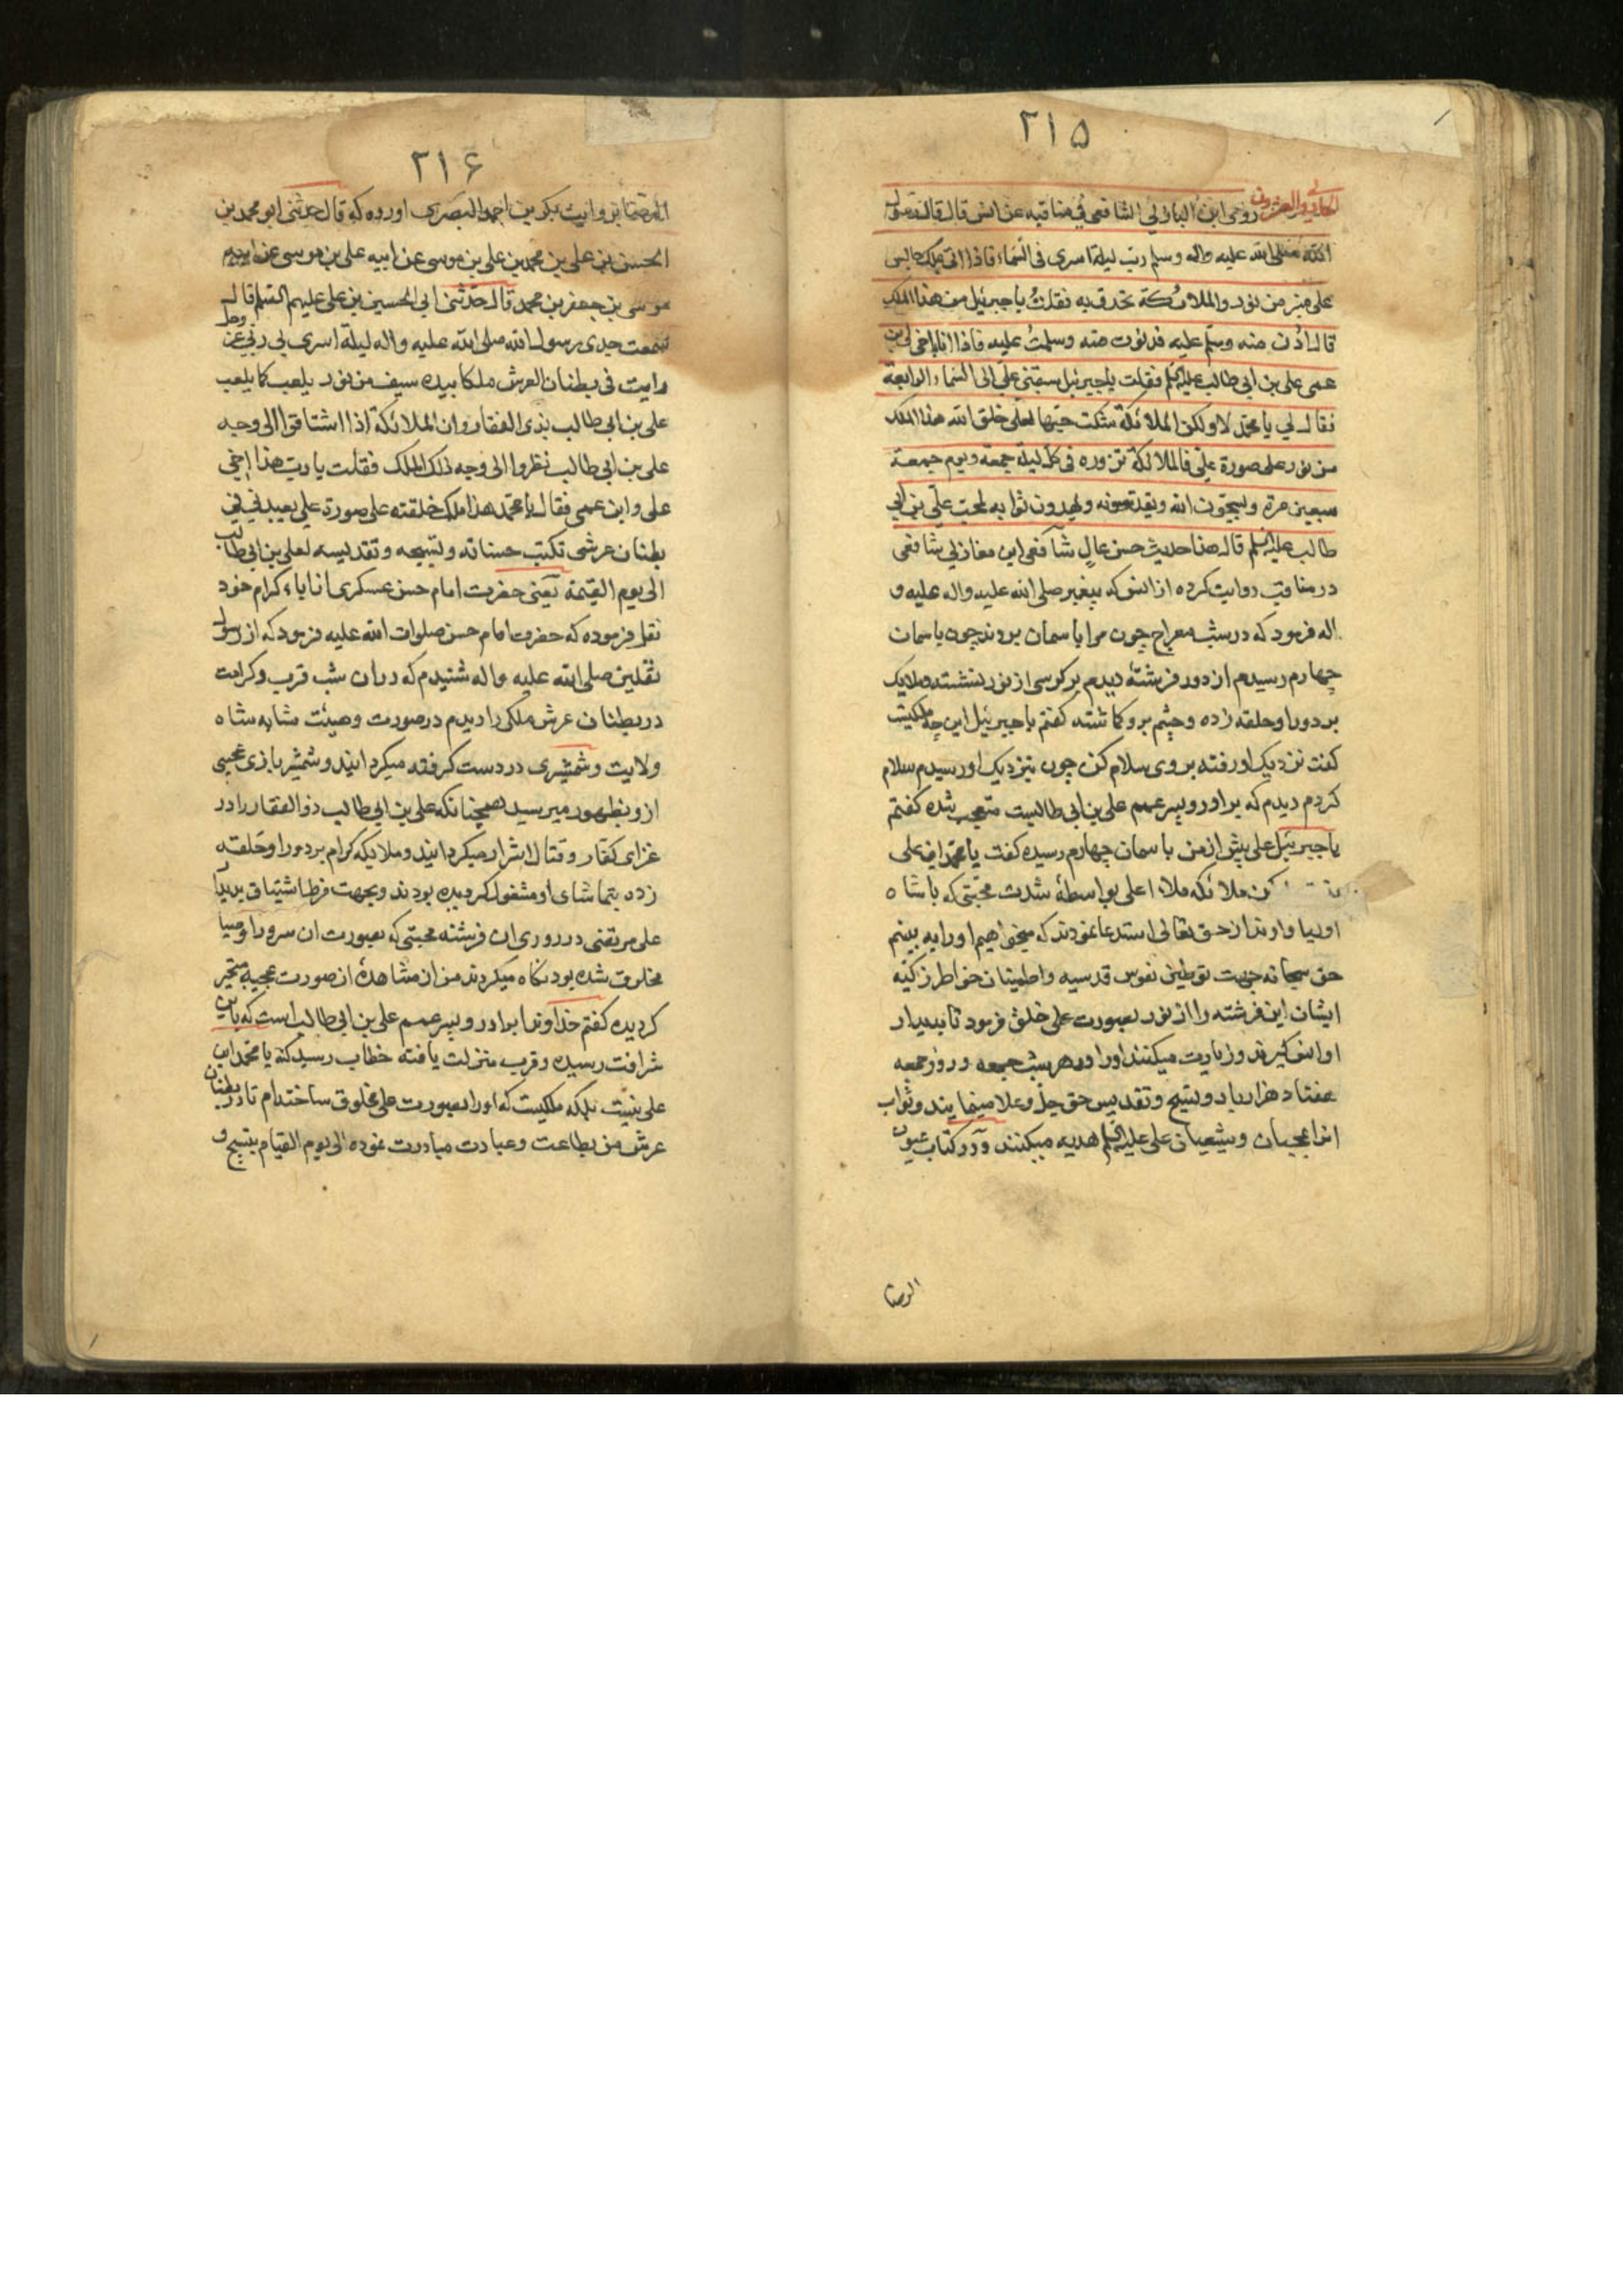 ۲۱۵
الحادی والعشرون روی ابن المغازلی الشافعی فی مناقبه عن انس قال قال رسول
الله صلی الله علیه واله وسلم ریت لیلة اسری فی السماء فاذا انی ملک جالس
علی منبر من نور والملائکة تحدق به فقلت یا جبرئیل من هذا الملک
قال اُدْن منه وسلّم علیه فدنوت منه وسلمتُ علیه فاذا انا باخی ابن
عمی علی بن ابی طالب علیه السلم فقلت یا جبرئیل سبقنی علیّ الی السماء الرابعة
فقال لی یا محمّد لا ولکن الملائکة شکت حبّها لعلی خلق الله هذا الملک
من نور علی صورة علیّ فالملائکة تزوره فی کل لیلة جمعة ویوم جمعة
سبعین مرة ویسبّحون الله ویقدسونه ویهدون ثوابه لمحبّ علیّ بن ابی
طالب علیه السلم قال هذا حدیث حسن عالٍ شافعی ابن مغازلی شافعی
در مناقب روایت کرده از انس که پیغمبر صلی الله علیه واله علیه و
اله فرمود که در شب معراج چون مرا باسمان بردند چون باسمان
چهارم رسیدم از دور فرشتهٔ دیدم بر کرسی از نور نشسته ملایک
بر دور او حلقه زده و چشم برو کماشته کفتم یا جبرئیل این چه ملکیست
کفت نزدیک او رفته بروی سلام کن چون بنزدیک او رسیدم سلام
کردم دیدم که برادر و پسر عمم علی بن ابی طالبست متعجب شده کفتم
یا جبرئیل علی پیش از من باسمان چهارم رسیده کفت یا محمّد این علی
ملائکه ملاء اعلی بواسطهٔ شدت محبّتی که با شاه
اولیا وارند از حق تعالی استدعا نمودند که میخواهیم او را به بینم
حق سبحانه جهت توطین نفوس قدسیه واطمینان خواطر زکیّه
ایشان این فرشته را از نور بصورت علی خلق فرمود تا بدیدار
او انس کیرند و زیارت میکنند او را در هر شب جمعه و روز جمعه
هفتاد هزار بار و تسبیح و تقدیس حق جلّ وعلا مینمایند و ثواب
انرا بمحبان و شیعیان علی علیه السلم هدیه میکنند و در کتاب عیون
الرضا
۲۱۶
الرضا بروایت بکر بن احمد البصری اورده که قال حدثنی ابو محمد بن
الحسن بن علی بن محمد بن علی بن موسی عن ابیه علی بن موسی عن ابیه
موسی بن جعفر بن محمد قال حدّثنی ابی الحسین بن علی علیهم السّلم قال
سمعت جدی رسول الله صلی الله علیه واله لیلة اسری بی ربّی عزّ وجل
رایت فی بطنان العرش ملکا بیده سیف من نور یلعب کما یلعب
علی بن ابی طالب بذی الفقار وان الملائکة اذا اشتاقوا الی وجه
علی بن ابی طالب نظروا الی وجه ذلک الملک فقلت یا ربّ هذا اخی
علی وابن عمی فقال یا محمّد هذا ملک خلقته علی صورة علی یعبدنی فی
بطنان عرشی تکتب حسناته وتسبیحه وتقدیسه لعلی بن ابی طالب
الی یوم القیمة یعنی حضرت امام حسن عسکری از اباء کرام خود
نقل فرموده که حضرت امام حسن صلوات الله علیه فرمود که از رسول
ثقلین صلی الله علیه واله شنیدم که دران شب قرب و کرامت
در بطنان عرش ملکی را دیدم در صورت و هیئت مشابه شاه
ولایت و شمشیری در دست کرفته میکردانید و شمشیر بازی عجبی
ازو بظهور میرسید همچنانکه علی بن ابی طالب ذوالفقار را در
غزای کفّار و قتال اشرار میکردانید و ملایکه کرام بر دور او حلقه
زده بتماشای او مشغول کردیده بودند و بجهت فرط اشتیاق بدیدار
علی مرتضی در روی ان فرشته محبتی که بصورت ان سرور اوصیا
مخلوق شده بود نکاه میکردند من از مشاهدهٔ ان صورت عجیبه متحیر
کردیده کفتم خداوندا برادر و پسر عمم علی بن ابی طالب است که باین
شرافت رسیده و قرب منزلت یافته خطاب رسید که یا محمّد این
علی نیست بلکه ملکیست که او را بصورت علی مخلوق ساخته‌ام تا در بطنان
عرش من بطاعت و عبادت مبادرت نموده الی یوم القیام بتسبیح و